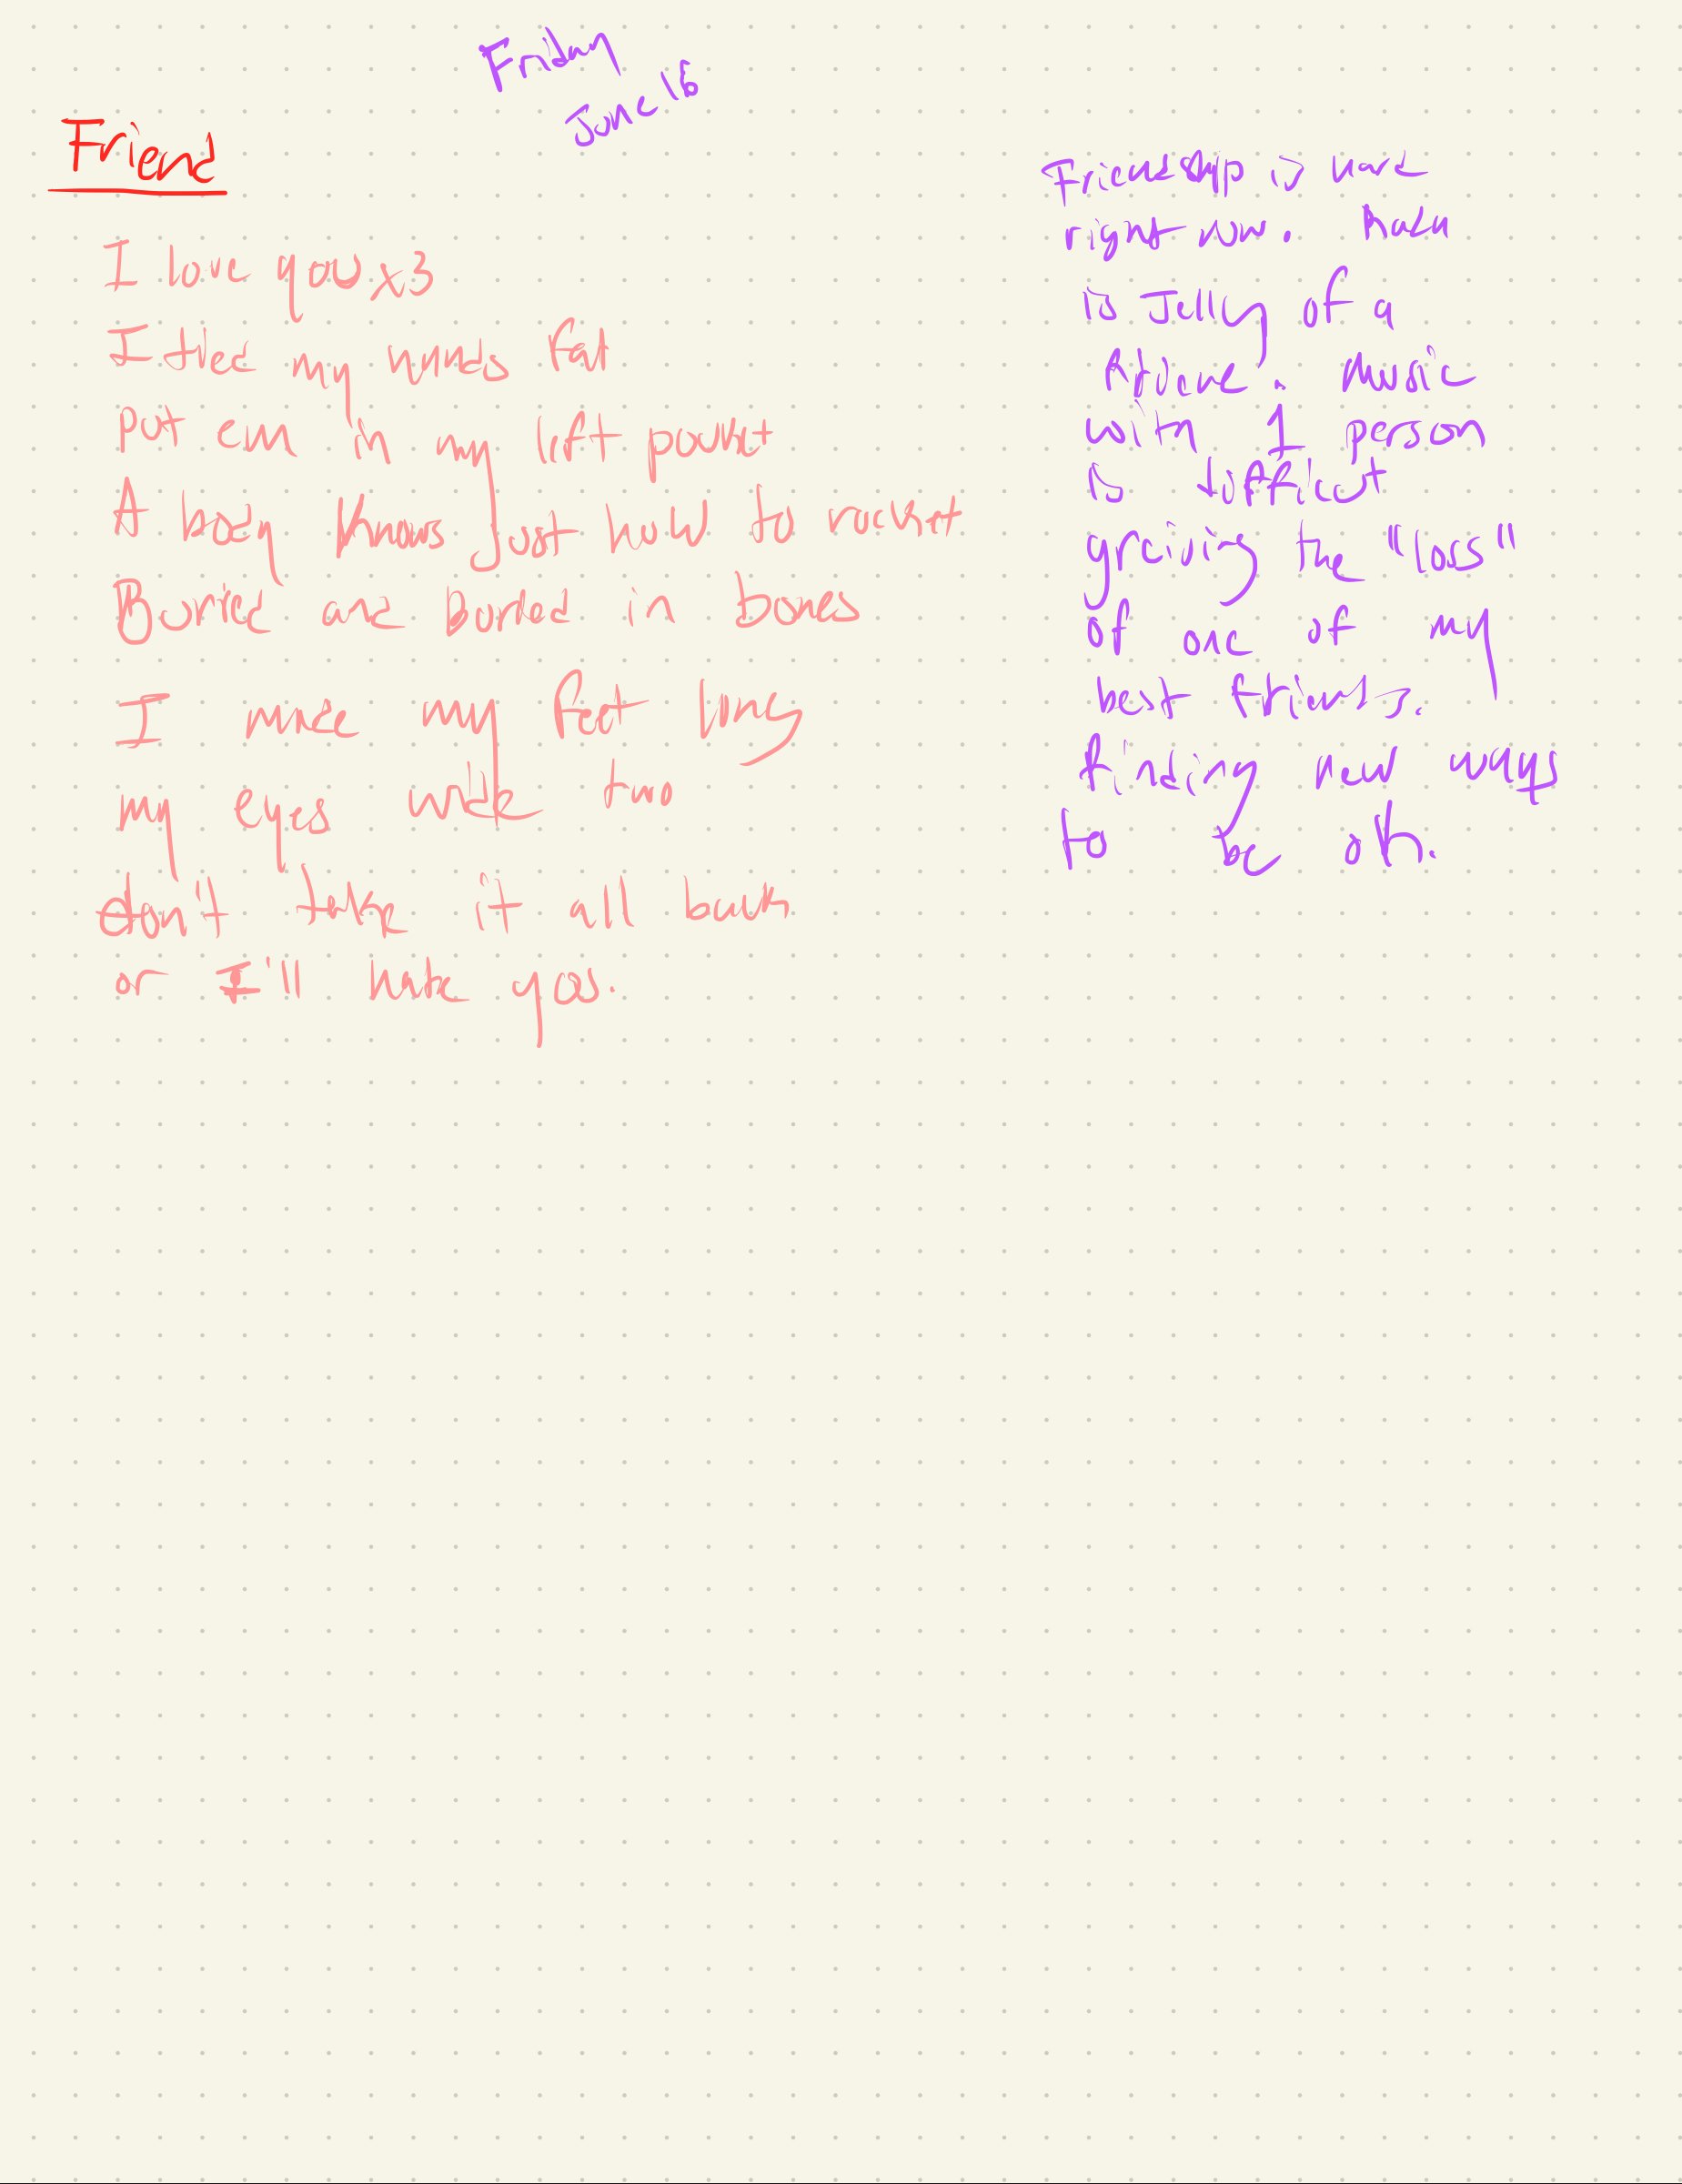 Friday
June 16
Friend
I love you x3
I tied my hands fat
put em in my left pocket
A body knows just how to rocket
Buried and Borded in bones
I make my feet long
my eyes wide two
don't take it all back
or I'll hate you.
Friendship is hard
right now.
is Jelly of a
music
with 1 person
is difficult
greiving the "loss"
of one of my
best friends.
finding new ways
to be ok.